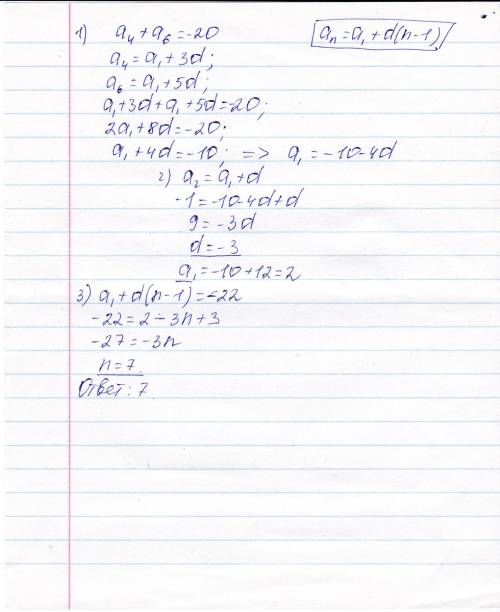 1) a₄ + a₆ = -20
aₙ = a₁ + d(n-1)
a₄ = a₁ + 3d;
a₆ = a₁ + 5d;
a₁ + 3d + a₁ + 5d = -20;
2a₁ + 8d = -20;
a₁ + 4d = -10; => a₁ = -10-4d
2) a₂ = a₁ + d
-1 = -10-4d+d
9 = -3d
d = -3
a₁ = -10 + 12 = 2
3) a₁ + d(n-1) = -22
-22 = 2 - 3n + 3
-27 = -3n
n = 7
Ответ: 7